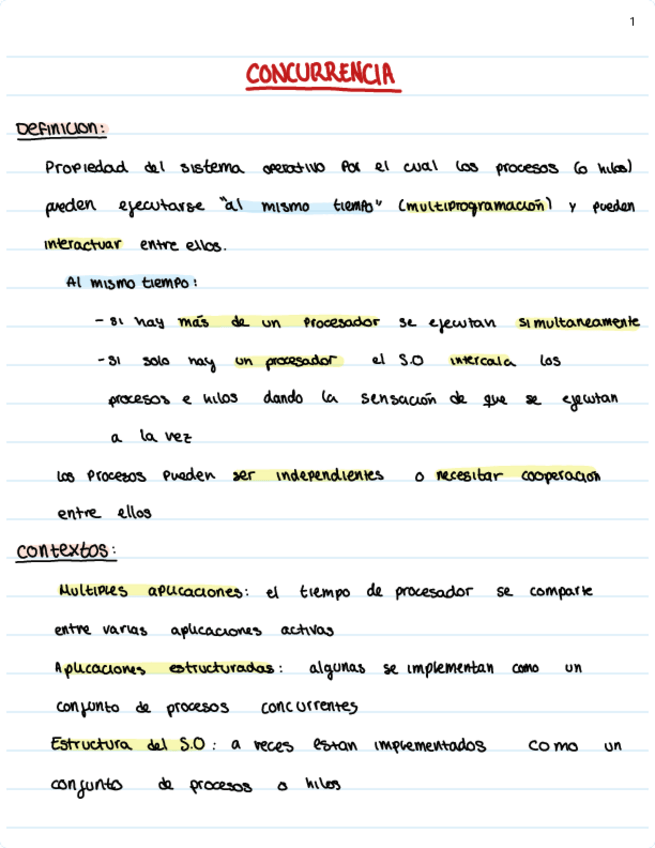 1
CONCURRENCIA
Definicion:
Propiedad del sistema operativo por el cual los procesos (o hilos)
pueden ejecutarse "al mismo tiempo" (multiprogramación) y pueden
interactuar entre ellos.
Al mismo tiempo:
- si hay más de un procesador se ejecutan simultaneamente
- si solo hay un procesador el S.O intercala los
procesos e hilos dando la sensación de que se ejecutan
a la vez
los procesos pueden ser independientes o necesitar cooperación
entre ellos
Contextos:
Multiples aplicaciones: el tiempo de procesador se comparte
entre varias aplicaciones activas
Aplicaciones estructuradas: algunas se implementan como un
conjunto de procesos concurrentes
Estructura del S.O: a veces estan implementados como un
conjunto de procesos o hilos